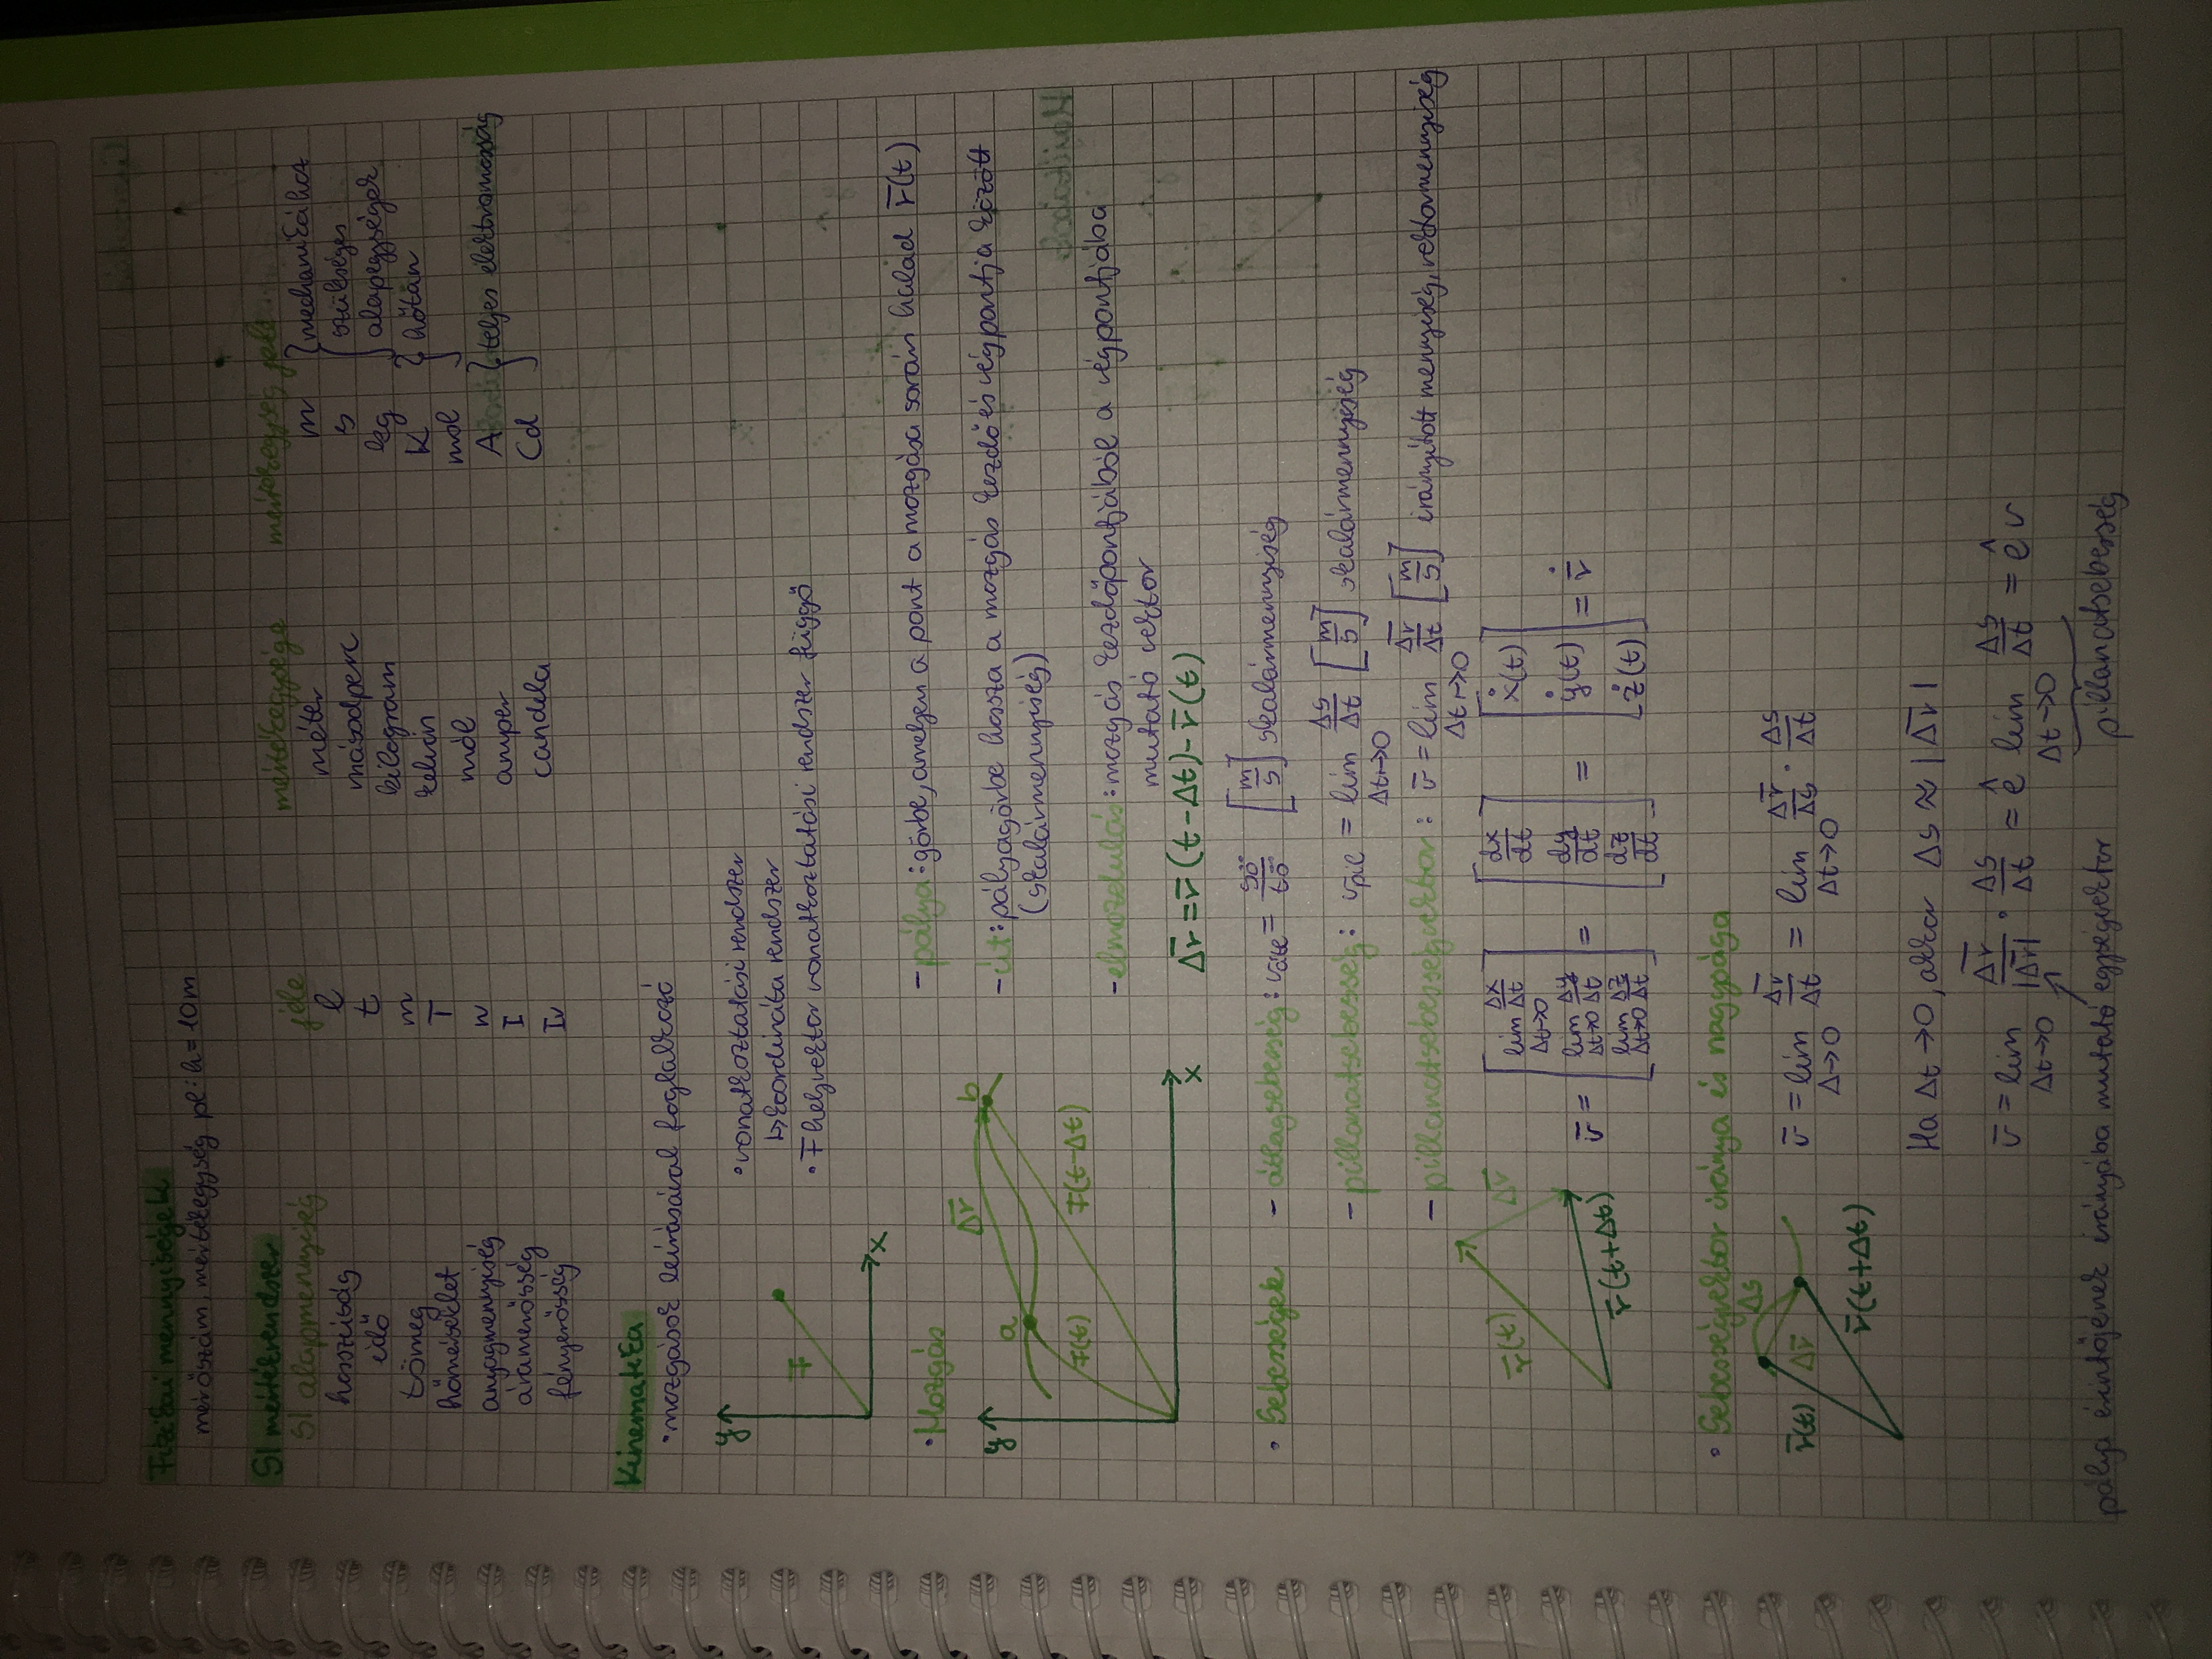 Fizikai mennyiségek
mérőszám, mértékegység pl: h = 10m
SI mértékrendszer
SI alapmennyiség jele mértékegysége mértékegység jele
hosszúság l méter m } mechanikához
idő t másodperc s szükséges
tömeg m kilogram kg alapegységek
hőmérséklet T kelvin K } hőtan
anyagmennyiség n mól mol
áramerősség I amper A } teljes elektromosság
fényerősség Iv candela Cd
Kinematika
• mozgások leírásával foglalkozó
y
r̅
x
• vonatkoztatási rendszer
↳ koordináta rendszer
• r̅ helyvektor vonatkoztatási rendszer függő
• Mozgás
y
a
Δr̅
b
r̅(t)
r̅(t-Δt)
x
- pálya: görbe, amelyen a pont a mozgása során halad r̅(t)
- út: pályagörbe hossza a mozgás kezdő és végpontja között
(skalármennyiség)
- elmozdulás: mozgás kezdőpontjából a végpontjába
mutató vektor
Δr̅ = r̅(t-Δt) - r̅(t)
• Sebességek - átlagsebesség: v_átl = sö/tö [m/s] skalármennyiség
- pillanatsebesség: v_pil = lim Δt→0 Δs/Δt [m/s] skalármennyiség
- pillanatsebességvektor: v̅ = lim Δt→0 Δr̅/Δt [m/s] irányított mennyiség, vektormennyiség
r̅(t)
Δr̅
r̅(t+Δt)
v̅ = [lim Δt→0 Δx/Δt, lim Δt→0 Δy/Δt, lim Δt→0 Δz/Δt] = [dx/dt, dy/dt, dz/dt] = [ẋ(t), ẏ(t), ż(t)] = ṙ̅
• Sebességvektor iránya és nagysága
Δs
r̅(t)
Δr̅
r̅(t+Δt)
v̅ = lim Δ→0 Δr̅/Δt = lim Δt→0 Δr̅/Δs · Δs/Δt
Ha Δt→0, akkor Δs ≈ |Δr̅|
v̅ = lim Δt→0 Δr̅/|Δr̅| · Δs/Δt = ê lim Δt→0 Δs/Δt = ê v
pálya érintőjének irányába mutató egységvektor
pillanatsebesség